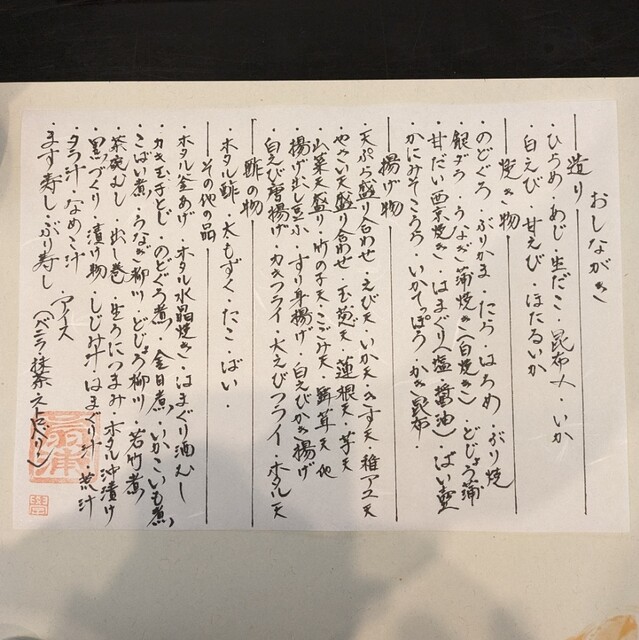 おしながき
造り
・ひらめ・あじ・生だこ・昆布〆・いか
白えび 甘えび・ほたるいか
焼き物
・のどぐろ・ぶりかま たら・はちめ・ぶり焼
・銀ダラ・うなぎ蒲焼き(白焼き)・どじょう蒲
・甘だい西京焼き・はまぐり(塩・醤油)・ばい壷
・かにみそこうら・いかてっぽう・かき昆布・
揚げ物
・天ぷら盛り合わせ・えび天・いか天・きす天 稚アユ天
・やさい天盛り合わせ・玉葱天 蓮根天・芋天
・山菜天盛り・竹の子天・こごみ天・舞茸天 他
・揚げ出し豆腐・すり身揚げ・白えびかき揚げ
・白えび唐揚げ・カキフライ・大えびフライ・ホタル天
酢の物
・ホタル酢・太もずく・たこ・ばい・
その他の品
・ホタル釜あげ・ホタル水晶焼き・はまぐり酒むし
・カキ玉子とじ・のどぐろ煮・金目煮・いかこいも煮
・こばい煮・うなぎ柳川・どじょう柳川・若竹煮
・茶碗むし・出し巻・生うにつまみ・ホタル沖漬け
・黒づくり・漬け物・しじみ汁・はまぐり汁・荒汁
・タラ汁・なめこ汁
・ます寿し・ぶり寿し・アイス
(バニラ 抹茶